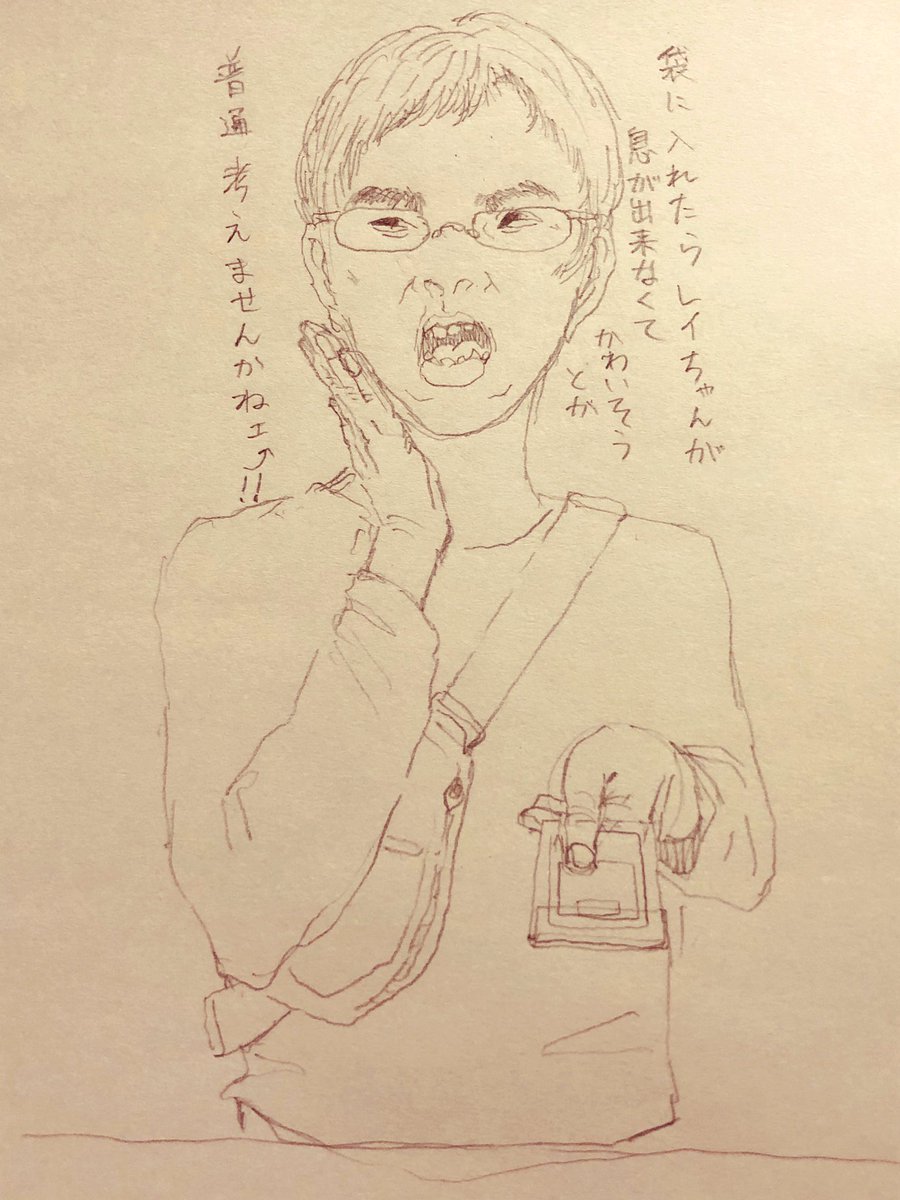 袋に入れたらレイちゃんが
息が出来なくて
かわいそう
とか
普通考えませんかねェ⤴!!